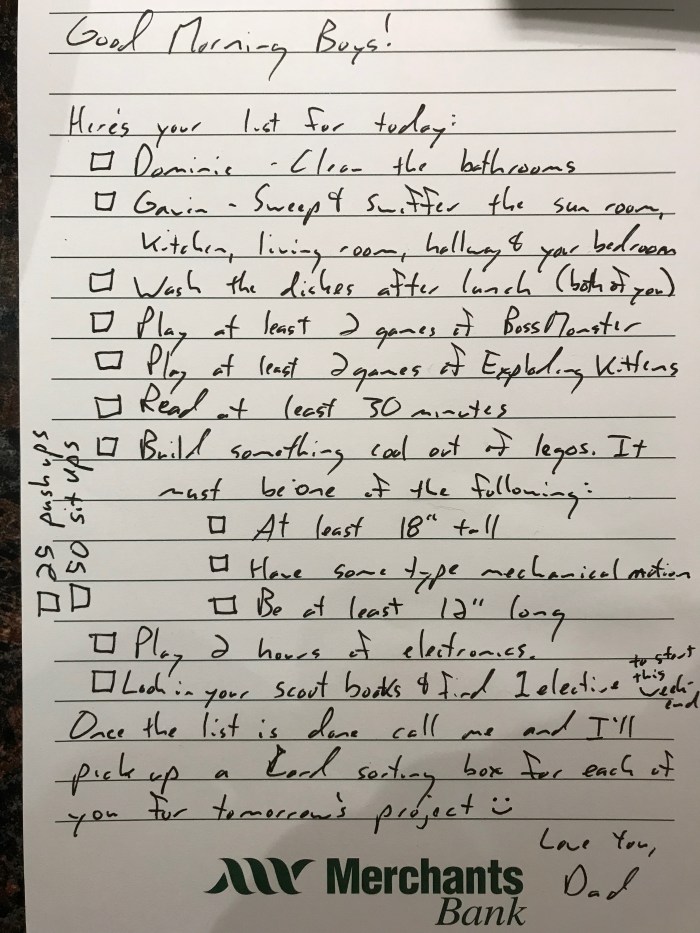 Good Morning Boys!
Here's your list for today:
□ Dominic - Clean the bathrooms
□ Gavin - Sweep & swiffer the sun room,
kitchen, living room, hallway & your bedroom
□ Wash the dishes after lunch (both of you)
□ Play at least 2 games of BossMonster
□ Play at least 2 games of Exploding Kittens
□ Read at least 30 minutes
□ Build something cool out of legos. It
must be one of the following:
□ At least 18" tall
□ Have some type mechanical motion
□ Be at least 12" long
□ Play 2 hours of electronics.
□ Look in your scout books & find 1 elective to start this week-end
□ 25 pushups
□ 50 sit ups
Once the list is done call me and I'll
pick up a Card sorting box for each of
you for tomorrow's project :)
Love You,
Dad
Merchants
Bank